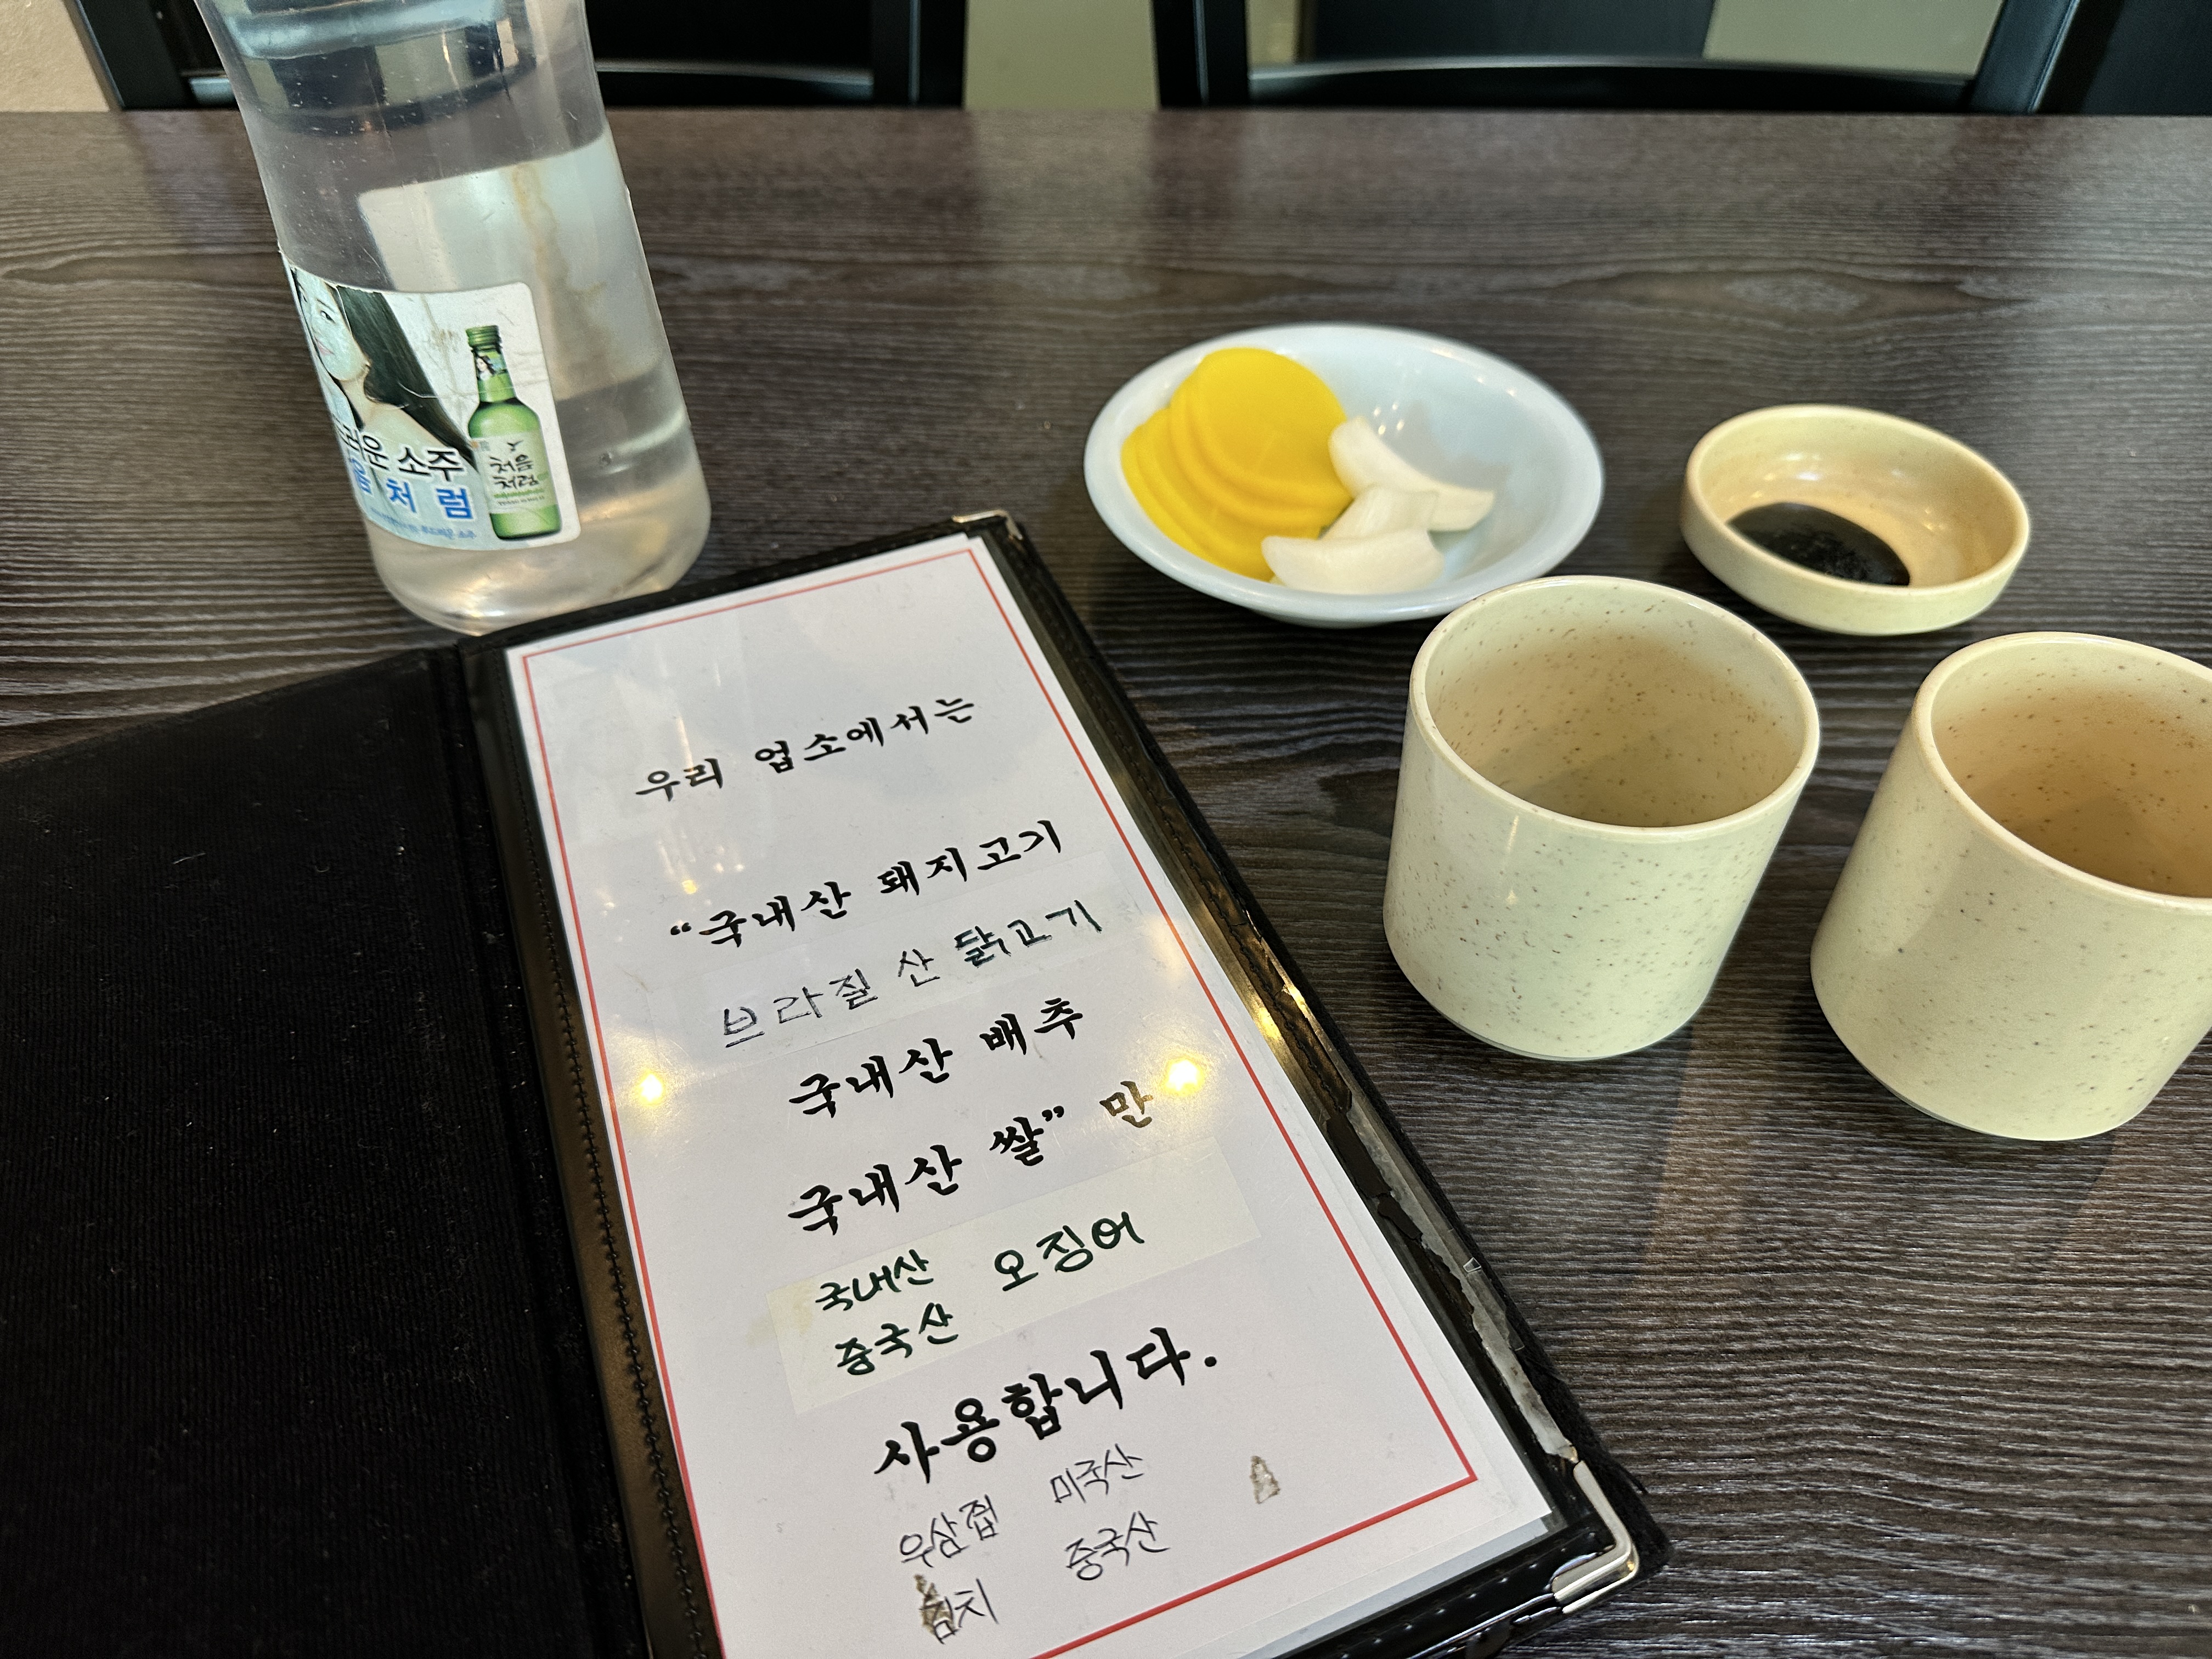 소주
처 럼
처음
처럼
우리 업소에서는
“국내산 돼지고기
브라질 산 닭고기
국내산 배추
국내산 쌀” 만
국내산 오징어
중국산
사용합니다.
우삼겹 미국산
김치 중국산